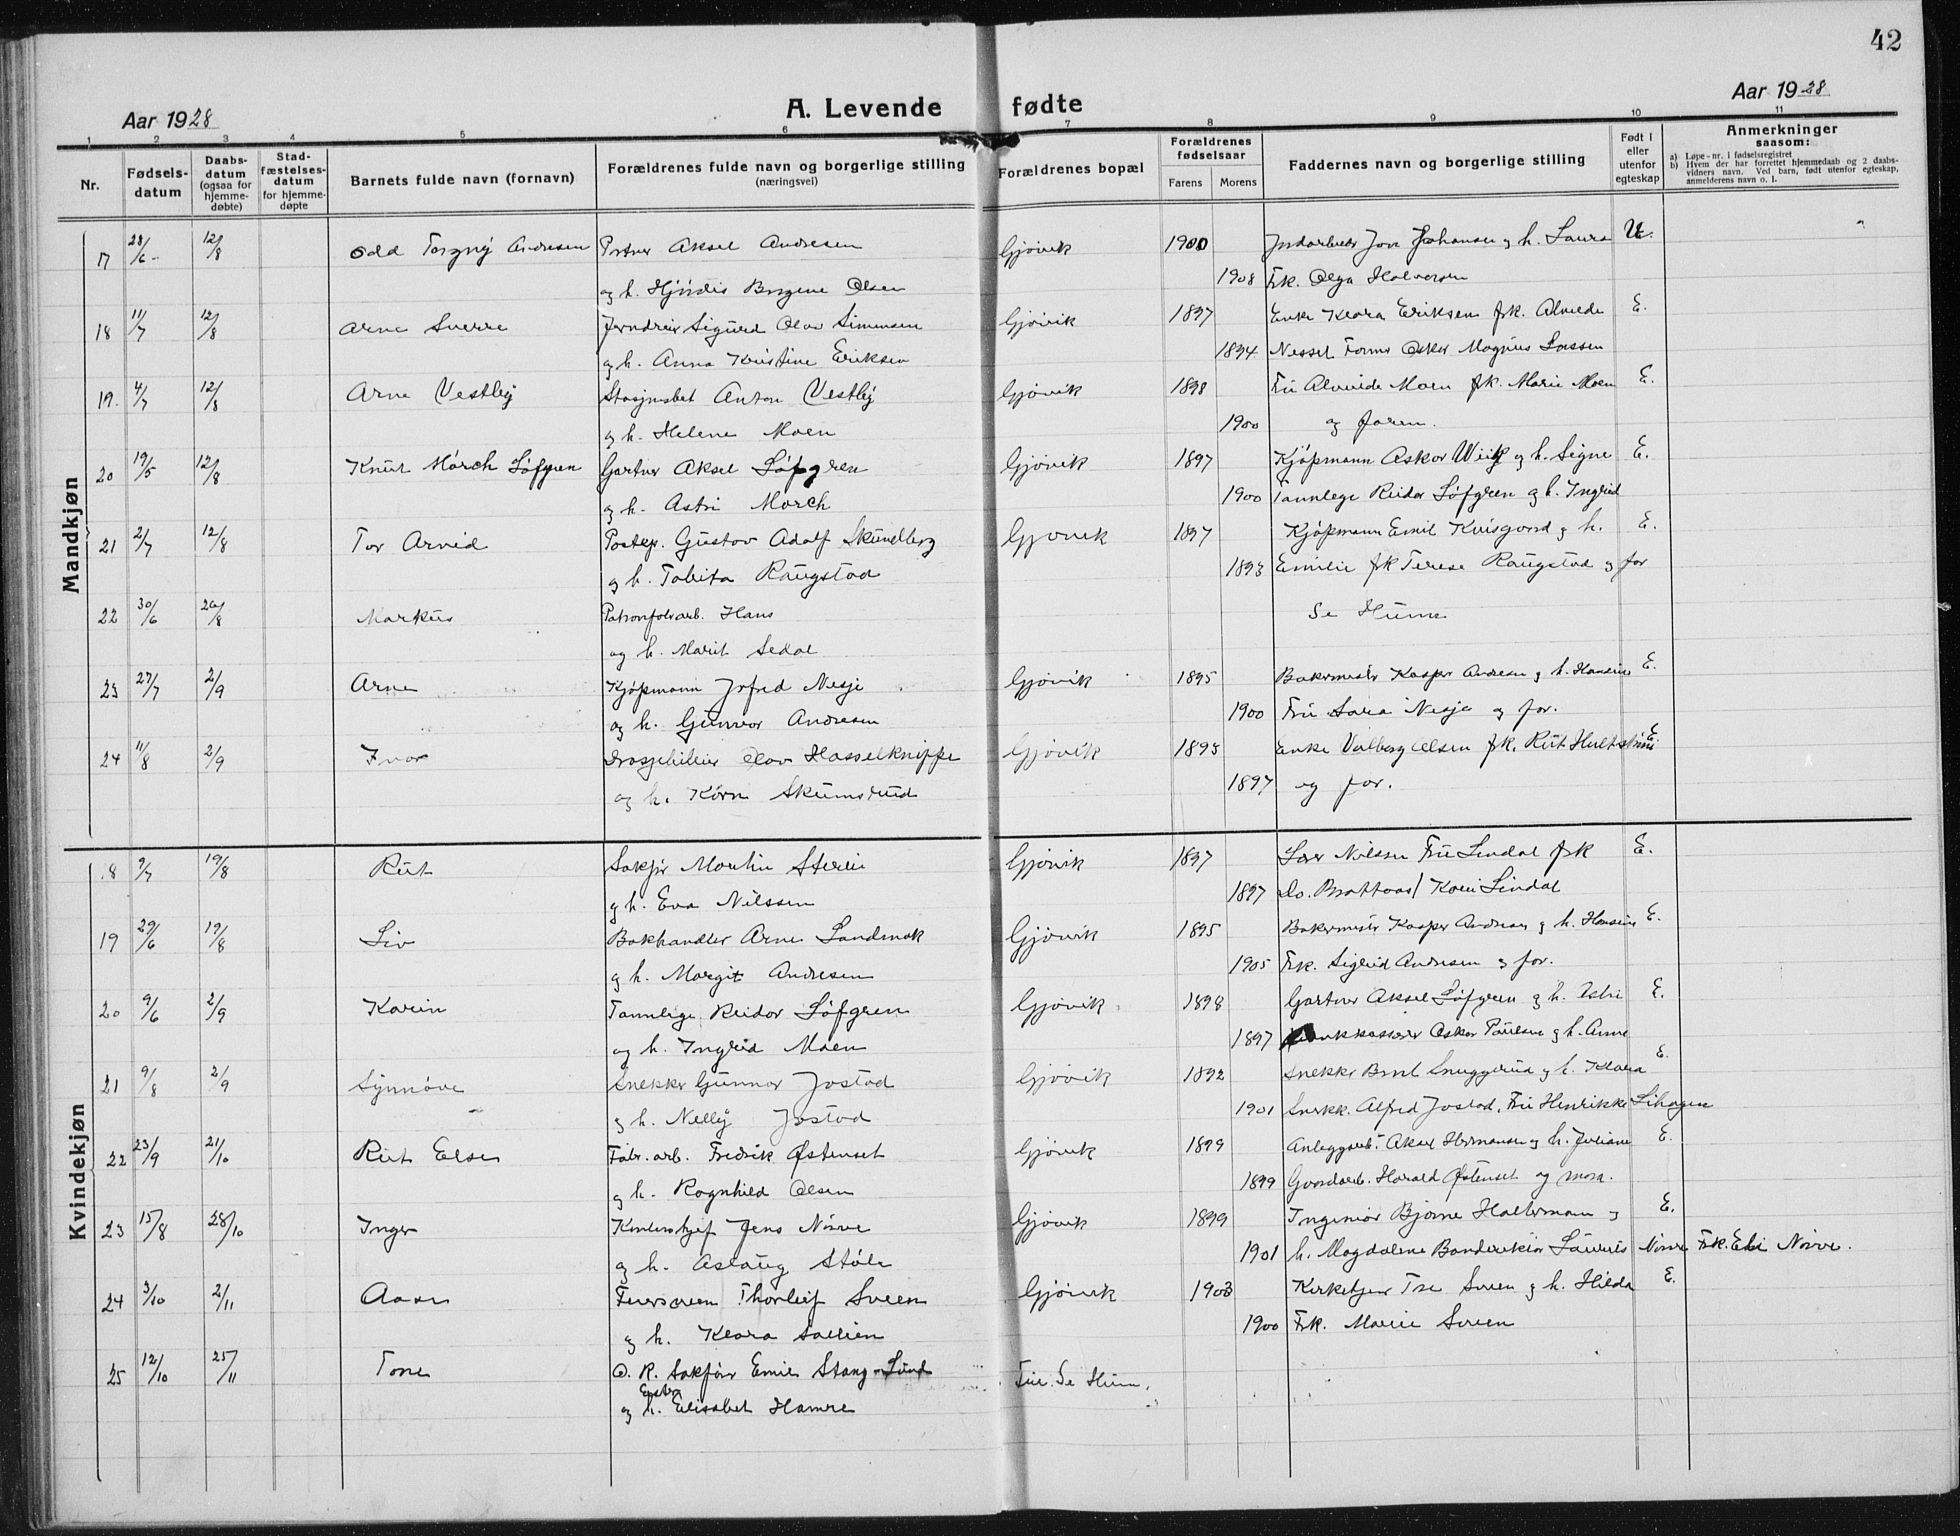 42
Aar 1928
A. Levende fødte
Aar 1928
1 2 3 4 5 6 7 8 9 10 11
Nr.
Fødsels-datum
Daabs-datum (ogsaa for hjemme-døbte)
Stad-fæstelses-datum for hjemme-døpte
Barnets fulde navn (fornavn)
Forældrenes fulde navn og borgerlige stilling (næringsvei)
Forældrenes bopæl
Forældrenes fødselsaar
Farens Morens
Faddernes navn og borgerlige stilling
Født i eller utenfor egteskap
Anmerkninger saasom:
a) Løpe-nr. i fødselsregistret
b) Hvem der har forrettet hjemmedaab og 2 daabs-vidners navn. Ved barn, født utenfor egteskap, anmelderens navn o. l.
Mandkjøn
17 28/6 12/8 Odd Torgny Andresen Aksel Andresen Gjøvik 1900 Johansen og h. Laura U.
og h. Hjördis Olsen 1908 Frk. Olga Halvorsen
18 11/7 12/8 Arne Sverre Jerndreier Sigurd Olav Simensen Gjøvik 1897 Enke Klara Eriksen frk. Alvilde E.
og h. Anna Kristine Eriksen 1894 Oskar Magnus
19. 4/7 12/8 Arne Vestby Anton Vestby Gjøvik 1898 Fru Moen frk. Marie Moen E.
og h. Helene Moen 1900 og faren.
20 19/5 12/8 Knut Mörch Löfgren Gartner Aksel Löfgren Gjøvik 1897 Kjøpmann og h. Signe E.
og h. Astri Mørch 1900 Tannlege Reidar Løfgren og h. Ingrid
21 2/7 12/8 Tor Arvid Postexp. Gustav Adolf Skundberg Gjøvik 1897 Kjøpmann Emil og h. E.
og h. Tabita Raugstad 1893 Emilie frk Terese Raugstad og far
22 30/6 /8 Markus Hans Se Hunn
og h. Marit Sedal
23 27/7 2/9 Arne Kjøpmann Nesje Gjøvik 1895 Bakermester Kasper Andresen og h. Hansine E.
og h. Gunvor Andresen 1900 Fru Sara Nesje og far.
24 11/8 2/9 Ivar Drosjebileier Olav Hasselknippe Gjøvik 1895 Enke Valborg Olsen frk. Rut E.
og h. Kørn Skumsrud 1897 og far.
Kvindekjøn
18 /7 19/8 Rut Sakfør Martin Gjøvik 1897 Nilsen Fru Lindal frk E.
og h. Eva Nilssen 1897 Do. Kari Lindal
19 29/6 19/8 Liv Bokhandler Arne Landmark Gjøvik 1895 Bakermester Kasper Andresen og h. Hansine E.
og h. Margit Andresen 1905 Frk. Sigrid Andresen og far.
20 9/6 2/9 Karin Tannlege Reidar Løfgren Gjøvik 1898 Gartner Aksel Løfgren og h. Astri E.
og h. Ingrid Moen 1897 Oskar Paulsen og h. Anne
21 9/8 2/9 Synnöve Snekker Gunnar Jostad Gjøvik 1892 Snekker Bernt Snuggerud og h. Klara E.
og h. Nelly Jostad 1901 Snekk. Alfred Jostad, Fru Henrikke Lihagen
22 23/9 21/10 Rut Else Fabr. arb. Fredrik Østenset Gjøvik 1899 Anleggsarb. Aksel Hermansen og h. Juliane E.
og h. Ragnhild Olsen 1899 Gaardarb. Harald Østenset og mora.
23 15/8 28/10 Inger Kontorchef Jens Nörve Gjøvik 1899 Ingeniør Bjarne Haltermann og E.
og h. Aslaug Støle 1901 h. Magdalene Laurits Nörve Frk. Nörve.
24 3/10 2/11 Aase Thorleif Sveen Gjøvik 1903 Kirketjener Sveen og h. Hilda E.
og h. Klara 1900 Frk. Marie Sveen
25 12/10 25/11 Tone O. R. Sakfører Emil Stang Lund Se Hunn.
og h. Elisabet Hamre